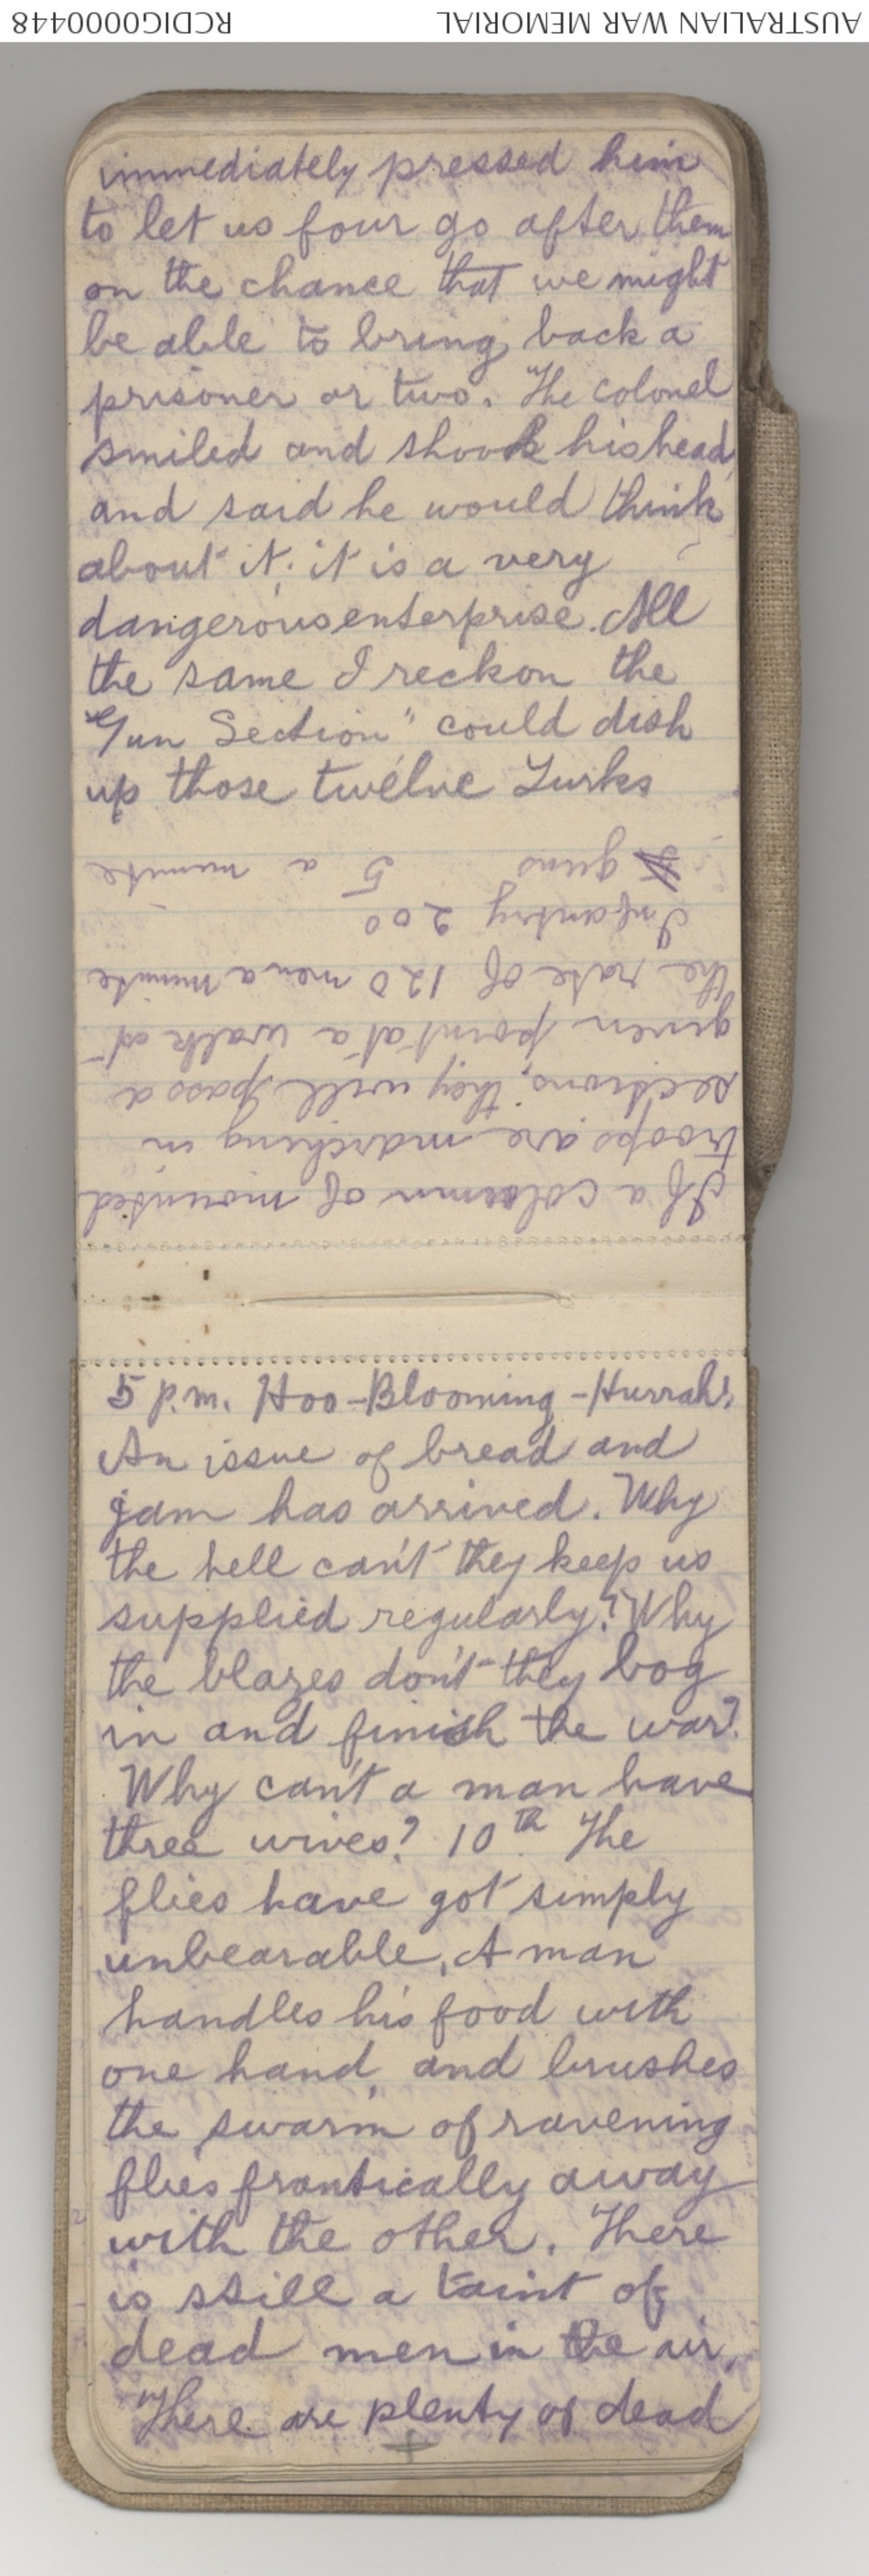 AUSTRALIAN WAR MEMORIAL
RCDIG0000448
immediately pressed him
to let us four go after them
on the chance that we might
be able to bring back a
prisoner or two. The colonel
smiled and shook his head,
and said he would think
about it. it is a very
dangerous enterprise. All
the same I reckon the
"Gun Section" could dish
up those twelve Turks
If a column of mounted
troops are marching in
sections, they will pass a
given point at a walk at
the rate of 120 men a minute
Infantry 200
guns 5 a minute
5 p.m. Hoo-Blooming-Hurrah!
An issue of bread and
jam has arrived. Why
the hell can't they keep us
supplied regularly? Why
the blazes don't they bog
in and finish the war?
Why can't a man have
three wives? 10th The
flies have got simply
unbearable. A man
handles his food with
one hand, and brushes
the swarm of ravening
flies frantically away
with the other. There
is still a taint of
dead men in the air.
There are plenty of dead